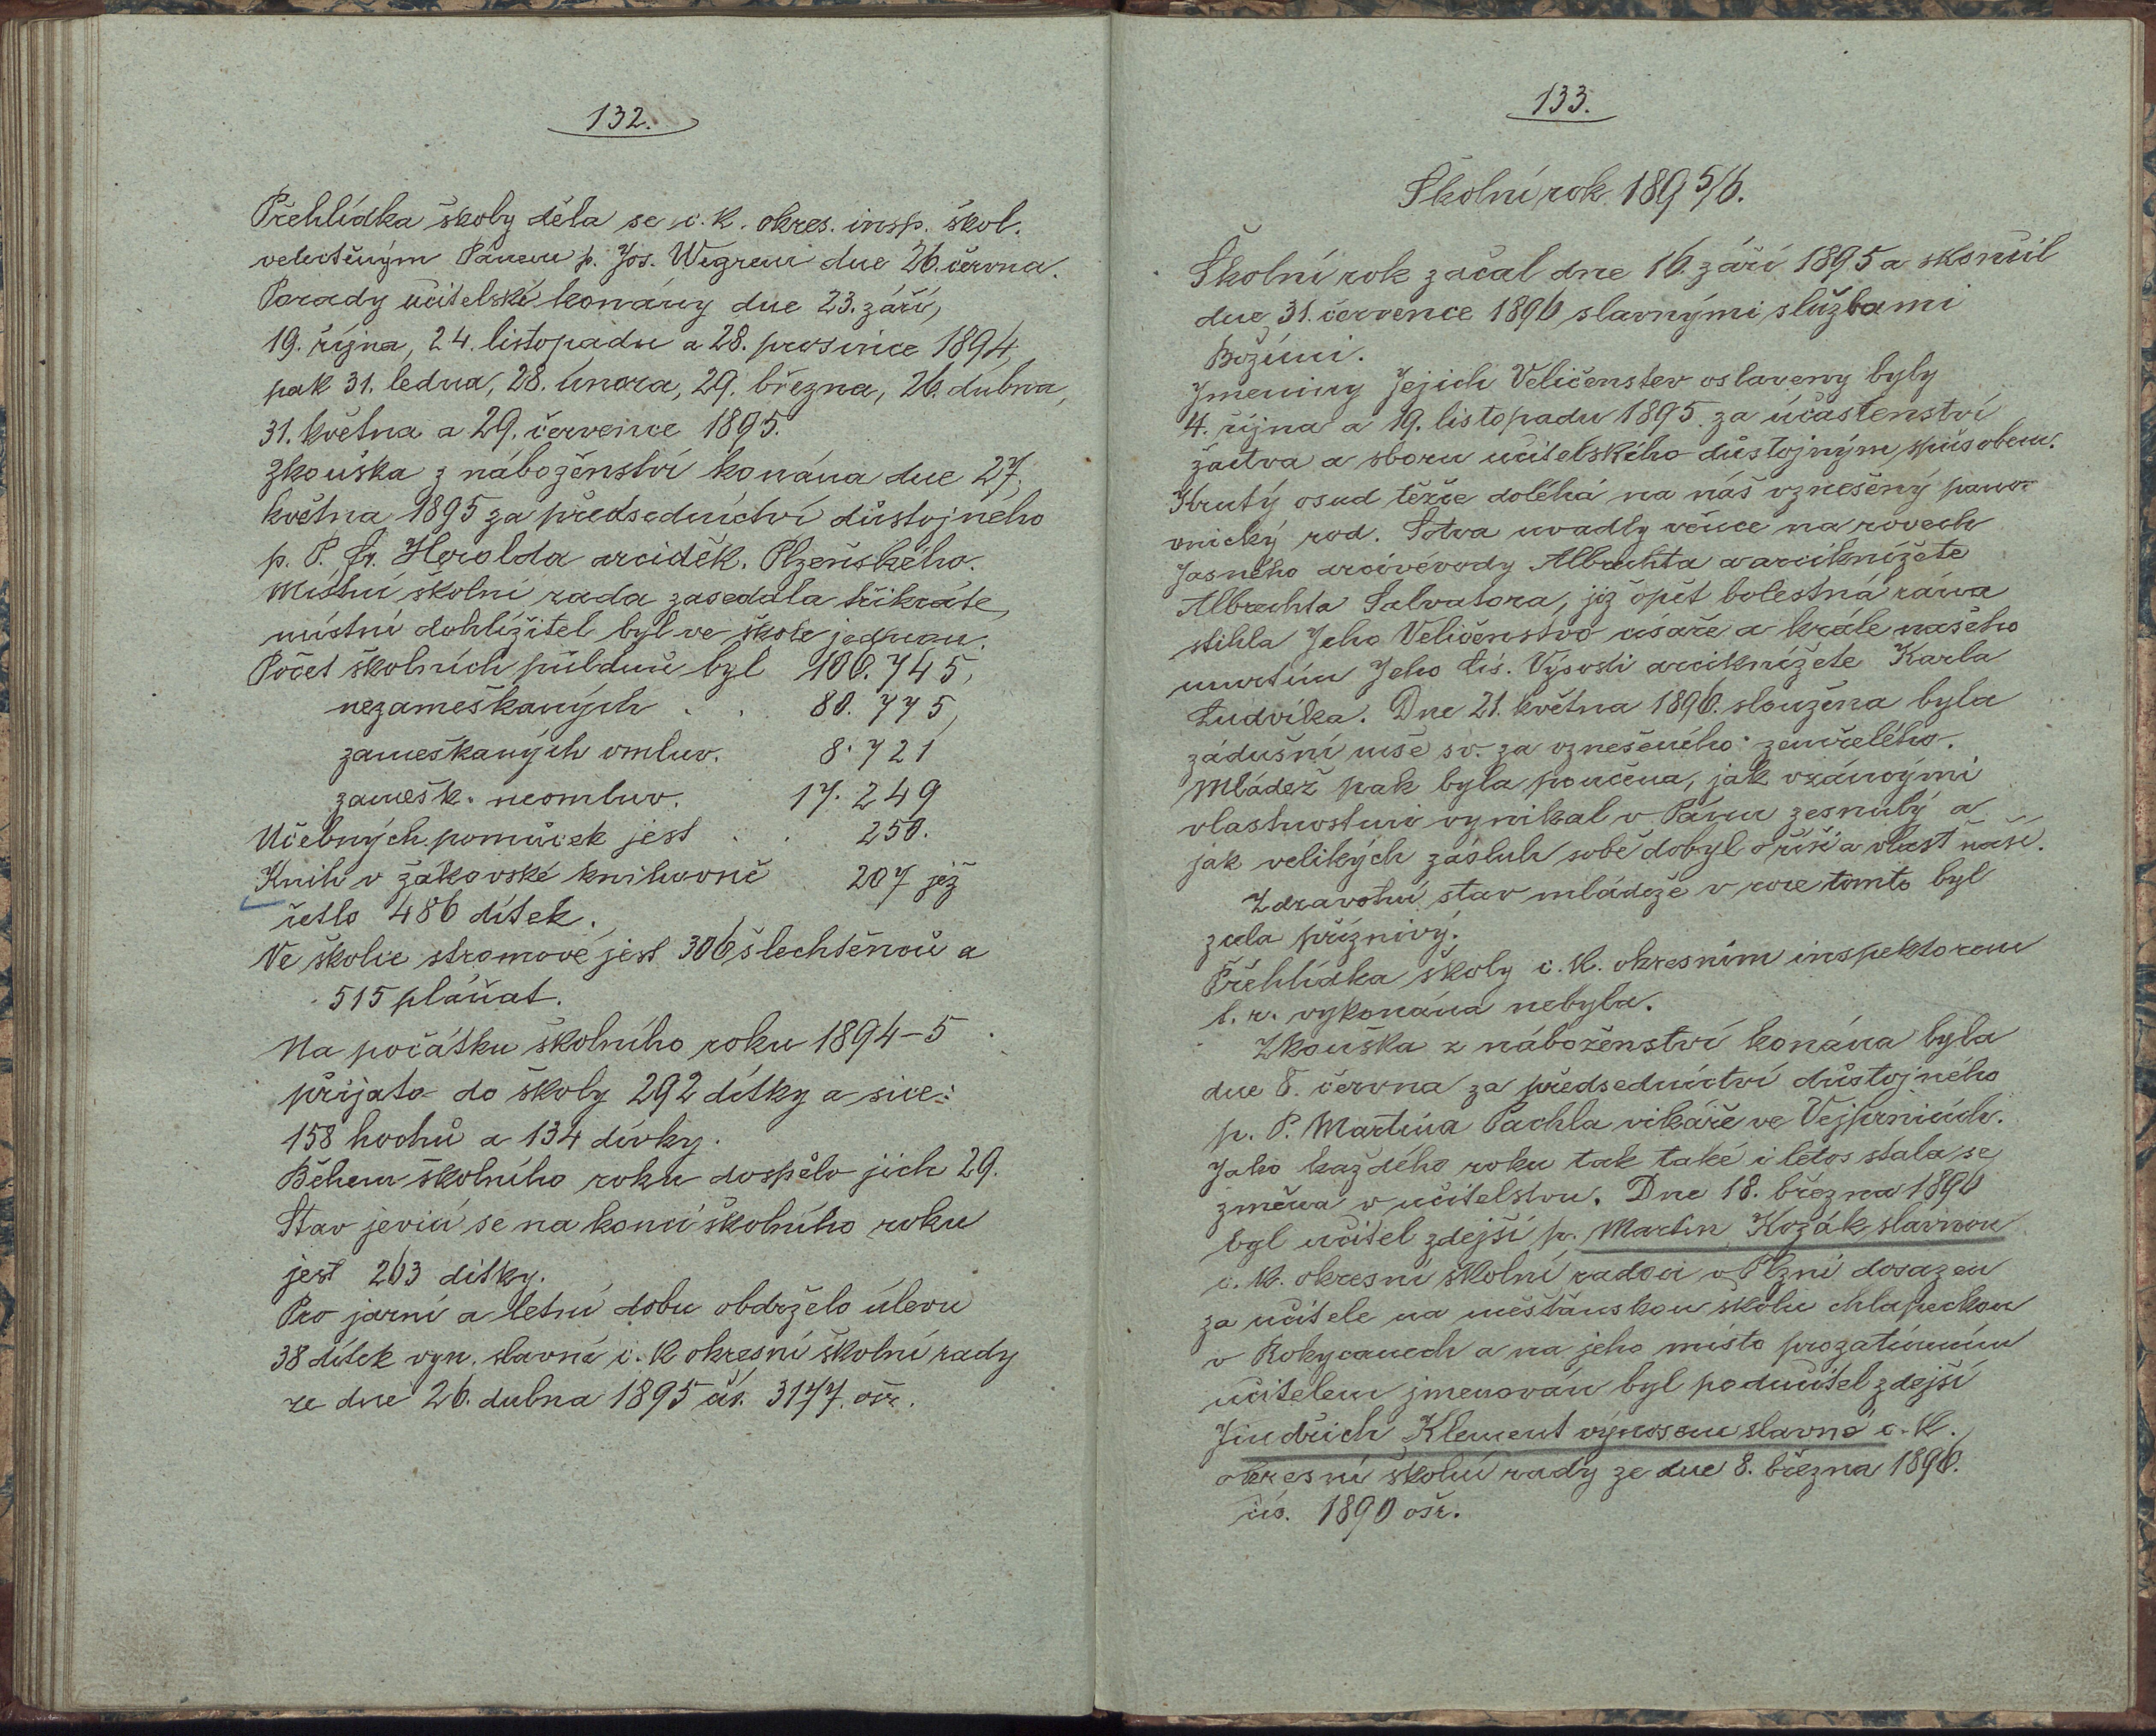 132.
Přehlídka školy děla se c. k. okres. insp. škol.
velectěným Pánem p. Jos. Wegrem dne 26. června.
Porady učitelské konány dne 23. září,
19. října, 24. listopadu a 28. prosince 1894,
pak 31. ledna, 28. února, 29. března, 26. dubna,
31. května a 29. července 1895.
Zkouška z náboženství konána dne 27.
května 1895 za předsednictví důstojného
p. P. Fr. Herolda arciděk. Plzeňského.
Místní školní rada zasedala třikráte,
místní dohlížitel byl ve škole jednou.
Počet školních půldnů byl 106.745,
nezameškaných . . 80.775,
zameškaných omluv. 8.721
zamešk. neomluv. 17.249
Učebných pomůcek jest . . 250.
Knih v žákovské knihovně 207 jež
četlo 486 dítek.
Ve školce stromové jest 306 šlechtěnců a
515 pláňat.
Na počátku školního roku 1894-5
přijato do školy 292 dítky a sice:
158 hochů a 134 dívky.
Během školního roku dospělo jich 29.
Stav jevící se na konci školního roku
jest 263 dítky.
Pro jarní a letní dobu obdrželo úlevu
38 dítek vyn. slavné c. k okresní školní rady
ze dne 26. dubna 1895 čís. 3177. ošr.
133.
Školní rok 1895/6.
Školní rok začal dne 16. září 1895 a skončil
dne 31. července 1896 slavnými službami
Božími.
Jmeniny Jejich Veličenstev oslaveny byly
4. října a 19. listopadu 1895. za účastenství
žactva a sboru učitelského důstojným spůsobem.
Krutý osud těžce doléhá na náš vznešený pano-
vnický rod. Sotva uvadly věnce na rovech
Jasného arcivévody Albrechta a arciknížete
Albrechta Salvatora, již opět bolestná rána
stihla Jeho Veličenstvo císaře a krále našeho
úmrtím Jeho cís. Výsosti arciknížete Karla
Ludvíka. Dne 21. května 1896. sloužena byla
zádušní mše sv. za vznešeného zemřelého.
Mládež pak byla poučena, jak vzácnými
vlastnostmi vynikal v Pánu zesnulý a
jak velikých zásluh sobě dobyl o říši a vlast naši.
Zdravotní stav mládeže v roce tomto byl
zcela příznivý.
Přehlídka školy c. k. okresním inspektorem
t. r. vykonána nebyla.
Zkouška z náboženství konána byla
dne 8. června za předsednictví důstojného
p. P. Martina Pachla vikáře ve Vejprnicích.
Jako každého roku tak také i letos stala se
změna v učitelstvu. Dne 18. března 1896
byl učitel zdejší p. Martin Kozák slavnou
c. k. okresní školní radou v Plzni dosazen
za učitele na měšťanskou školu chlapeckou
v Rokycanech a na jeho místo prozatímním
učitelem jmenován byl podučitel zdejší
Jindřich Klement výnosem slavné c. k.
okresní školní rady ze dne 8. března 1896.
čís. 1890 ošr.